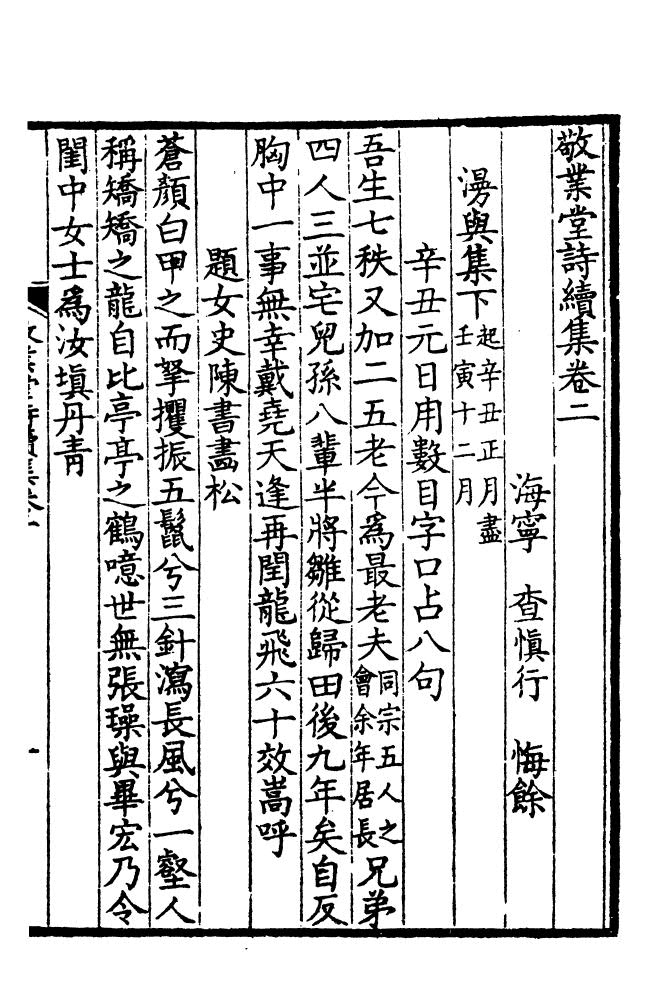 敬業堂詩續集卷二
海寧 查愼行 悔餘
漫與集下 起辛丑正月盡壬寅十二月
辛丑元日用數目字口占八句
吾生七秩又加二五老今爲最老夫同宗五人之會余年居長兄弟
四人三並宅兒孫八輩半將雛從歸田後九年矣自反
胸中一事無幸戴堯天逢再閏龍飛六十效嵩呼
題女史陳書畵松
蒼顔白甲之而拏攫振五鬛兮三針瀉長風兮一壑人
稱矯矯之龍自比亭亭之鶴噫世無張璪與畢宏乃令
閨中女士爲汝塡丹靑